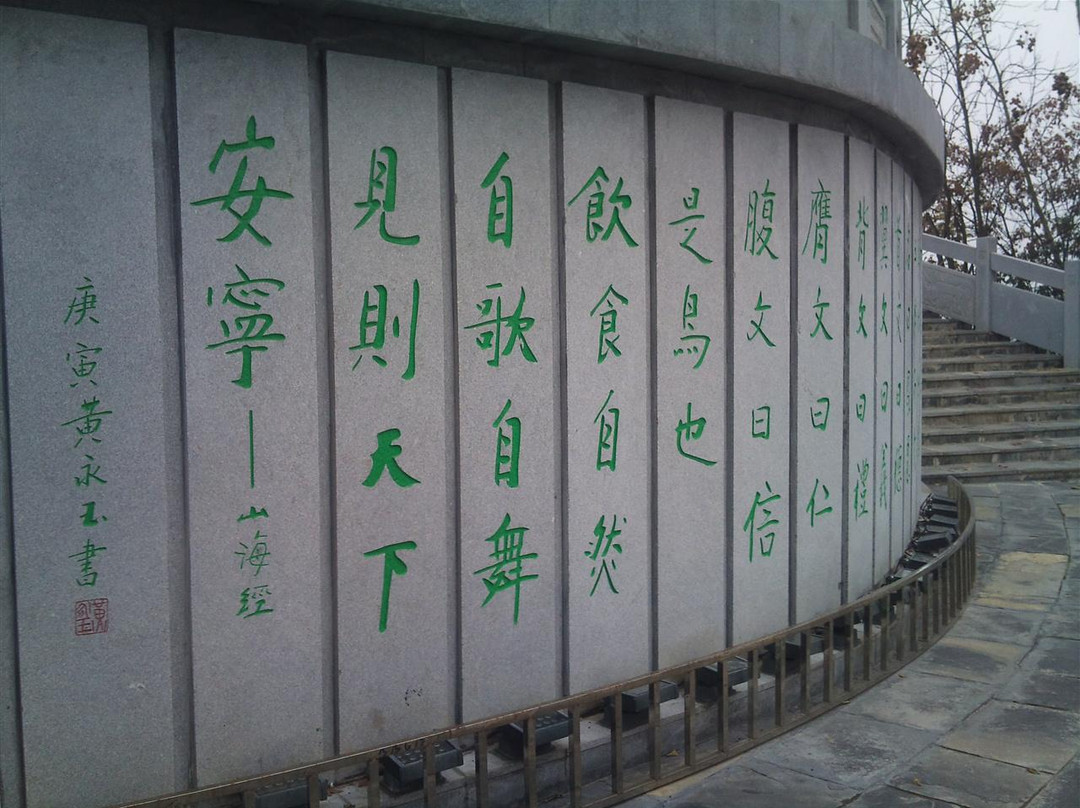 首文曰德
翼文曰義
背文曰禮
膺文曰仁
腹文曰信
是鳥也
飲食自然
自歌自舞
見則天下
安寧——山海經
庚寅黃永玉書